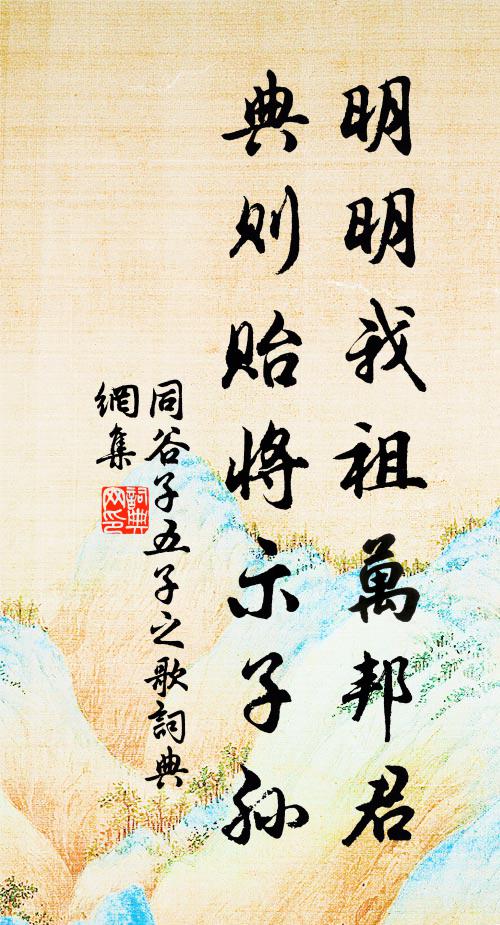 明明我祖萬邦君
典則貽將示子孫
同谷子五子之歌詞典
網集
詞典
网印